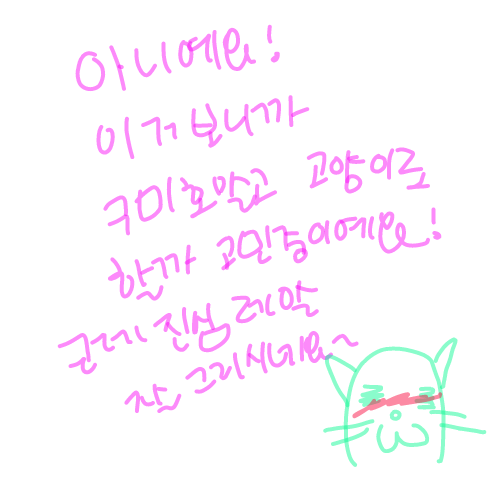 아니에요!
이거 보니까
구미호말고 고양이로
할까 고민중이에요!
근데 진심 레알
잘 그리시네요~